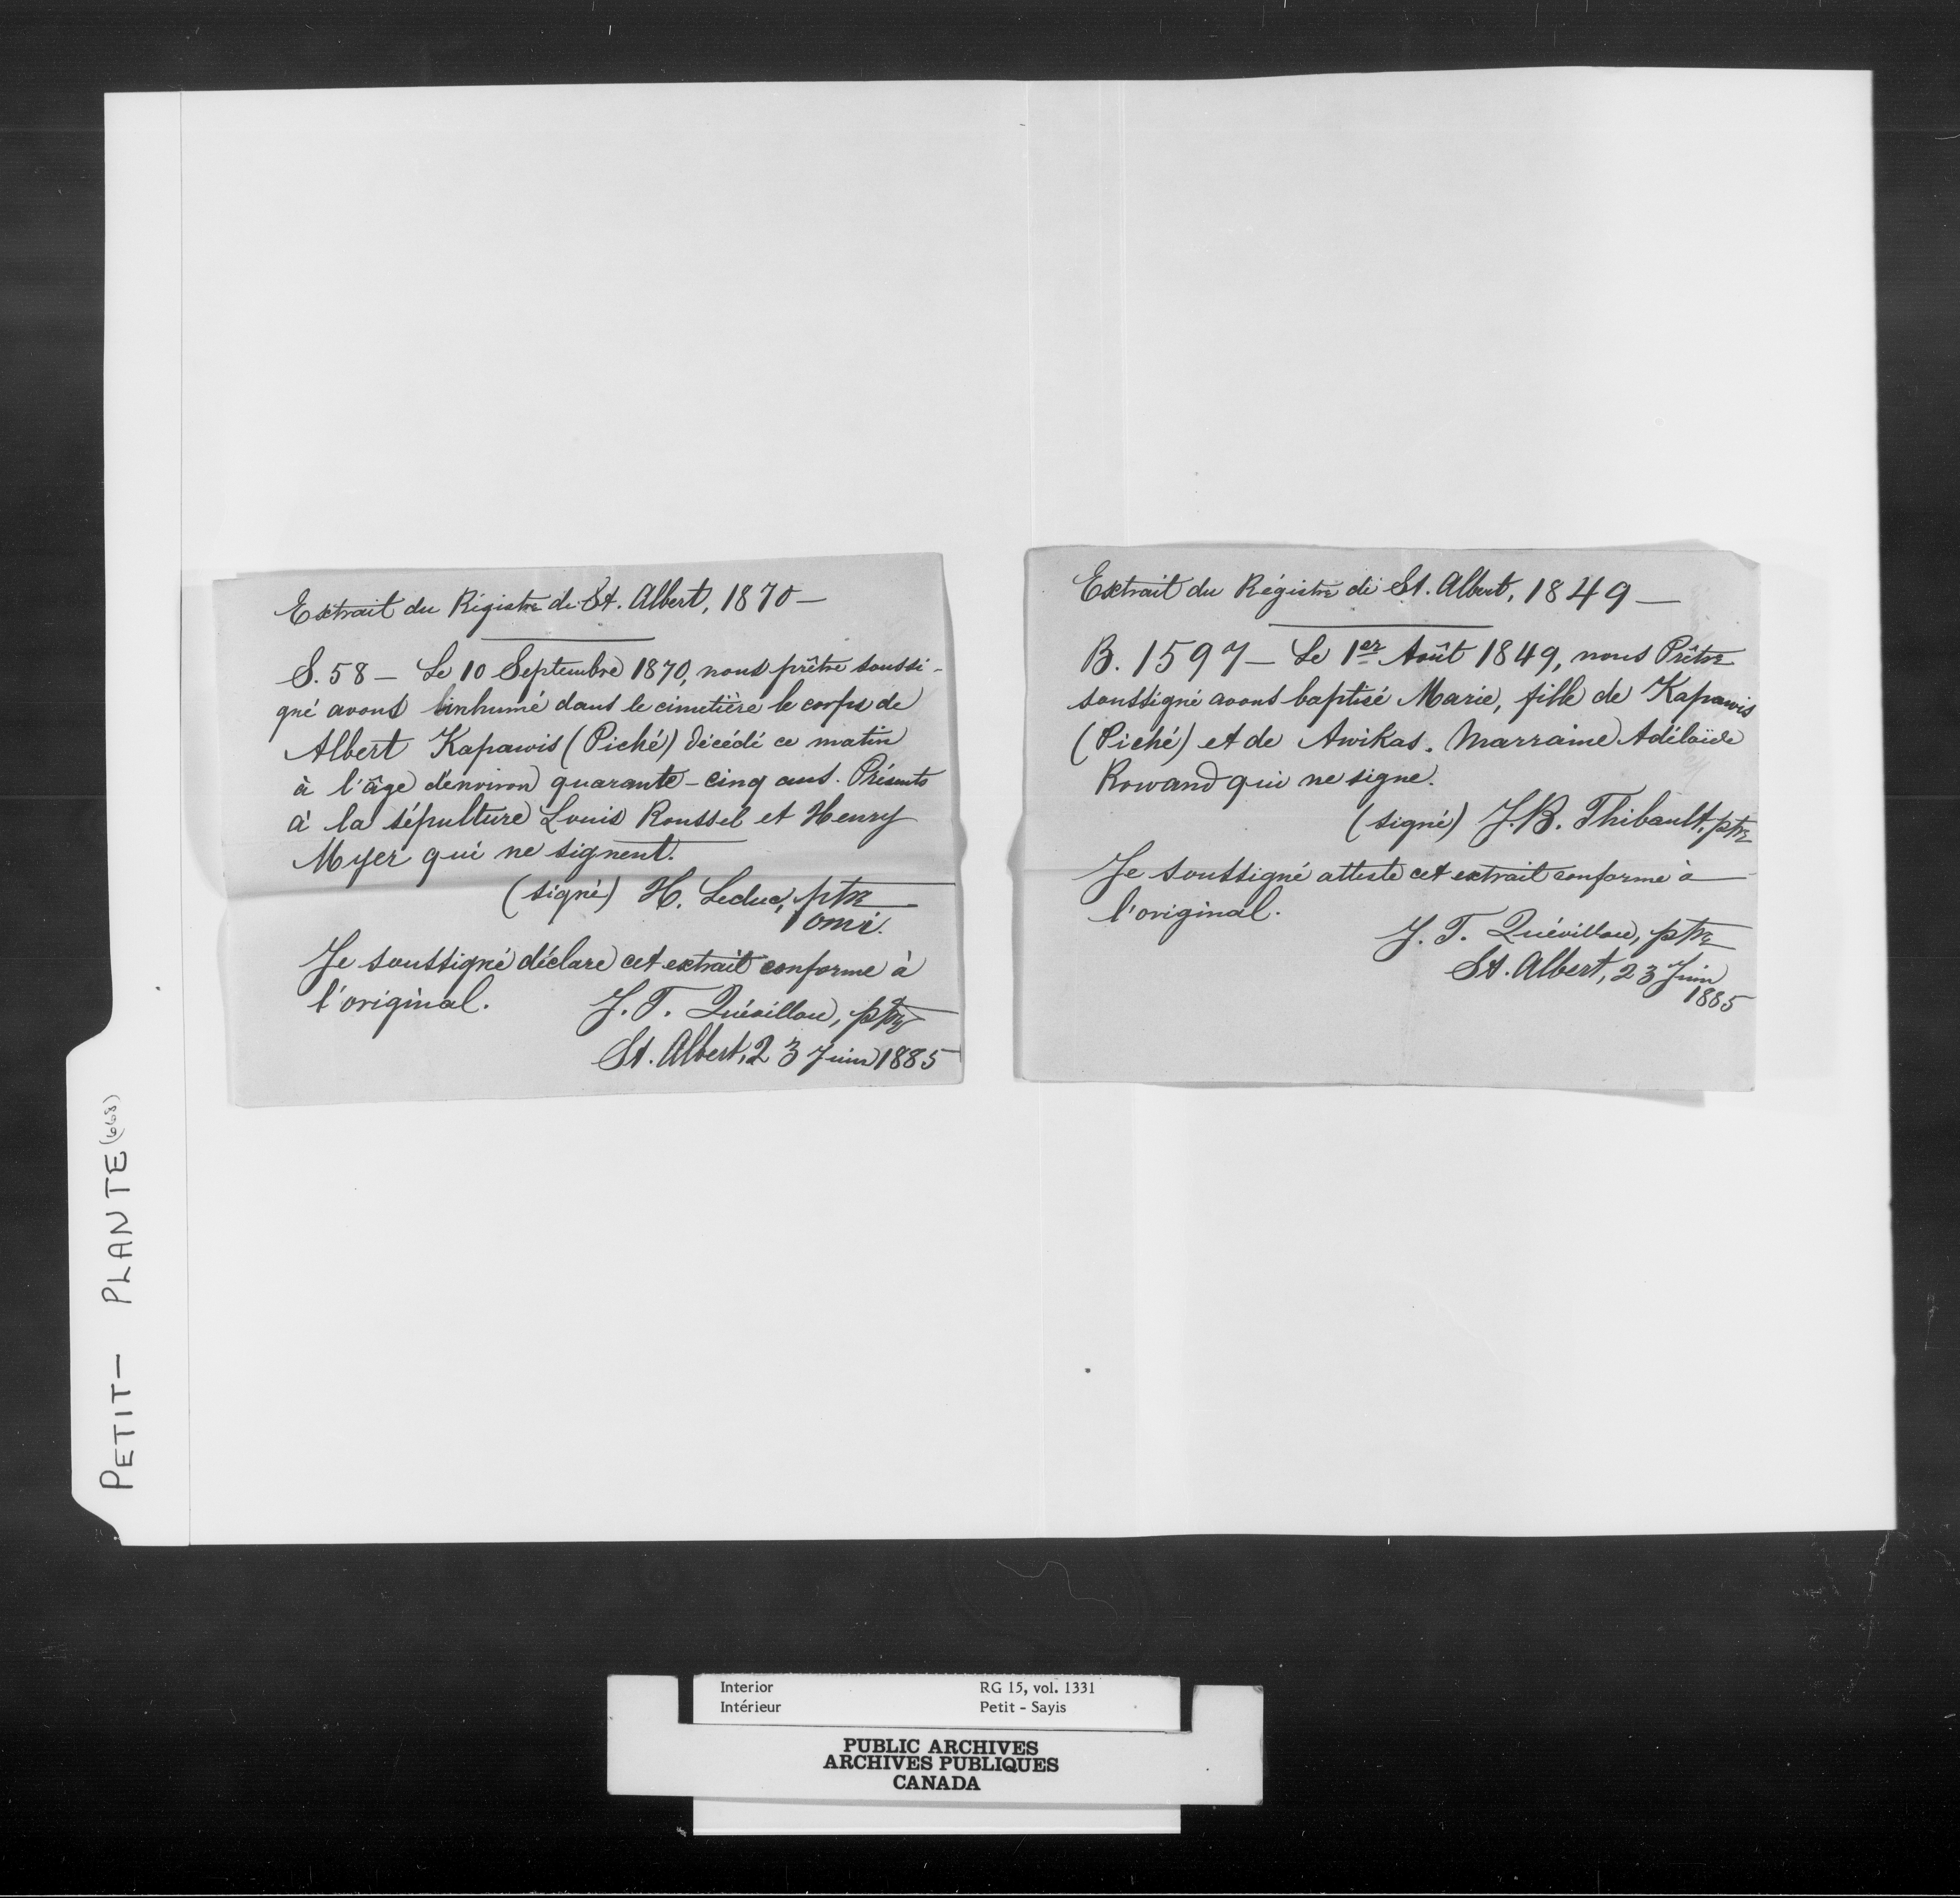 Extrait du Régistre de St. Albert, 1870 —
S. 58 — Le 10 Septembre 1870, nous prêtre soussi-
gné avons inhumé dans le cimetière le corps de
Albert Kapawis (Piché) décédé ce matin
à l'âge d'environ quarante-cinq ans. Présents
à la sépulture Louis Roussel et Henry
Myer qui ne signent.
(signé) H. Leduc, ptre
omi.
Je soussigné déclare cet extrait conforme à
l'original.
J. T. Quévillon, ptre
St. Albert, 23 Juin 1885
Extrait du Régistre de St. Albert, 1849 —
B. 1597 — Le 1er Août 1849, nous Prêtre
soussigné avons baptisé Marie, fille de Kapawis
(Piché) et de Awikas. Marraine Adélaïde
Rowand qui ne signe.
(signé) J.B. Thibault, ptre
Je soussigné atteste cet extrait conforme à
l'original.
J. T. Quévillon, ptre
St. Albert, 23 Juin
1885
PETIT — PLANTE (668)
Interior RG 15, vol. 1331
Intérieur Petit - Sayis
PUBLIC ARCHIVES
ARCHIVES PUBLIQUES
CANADA